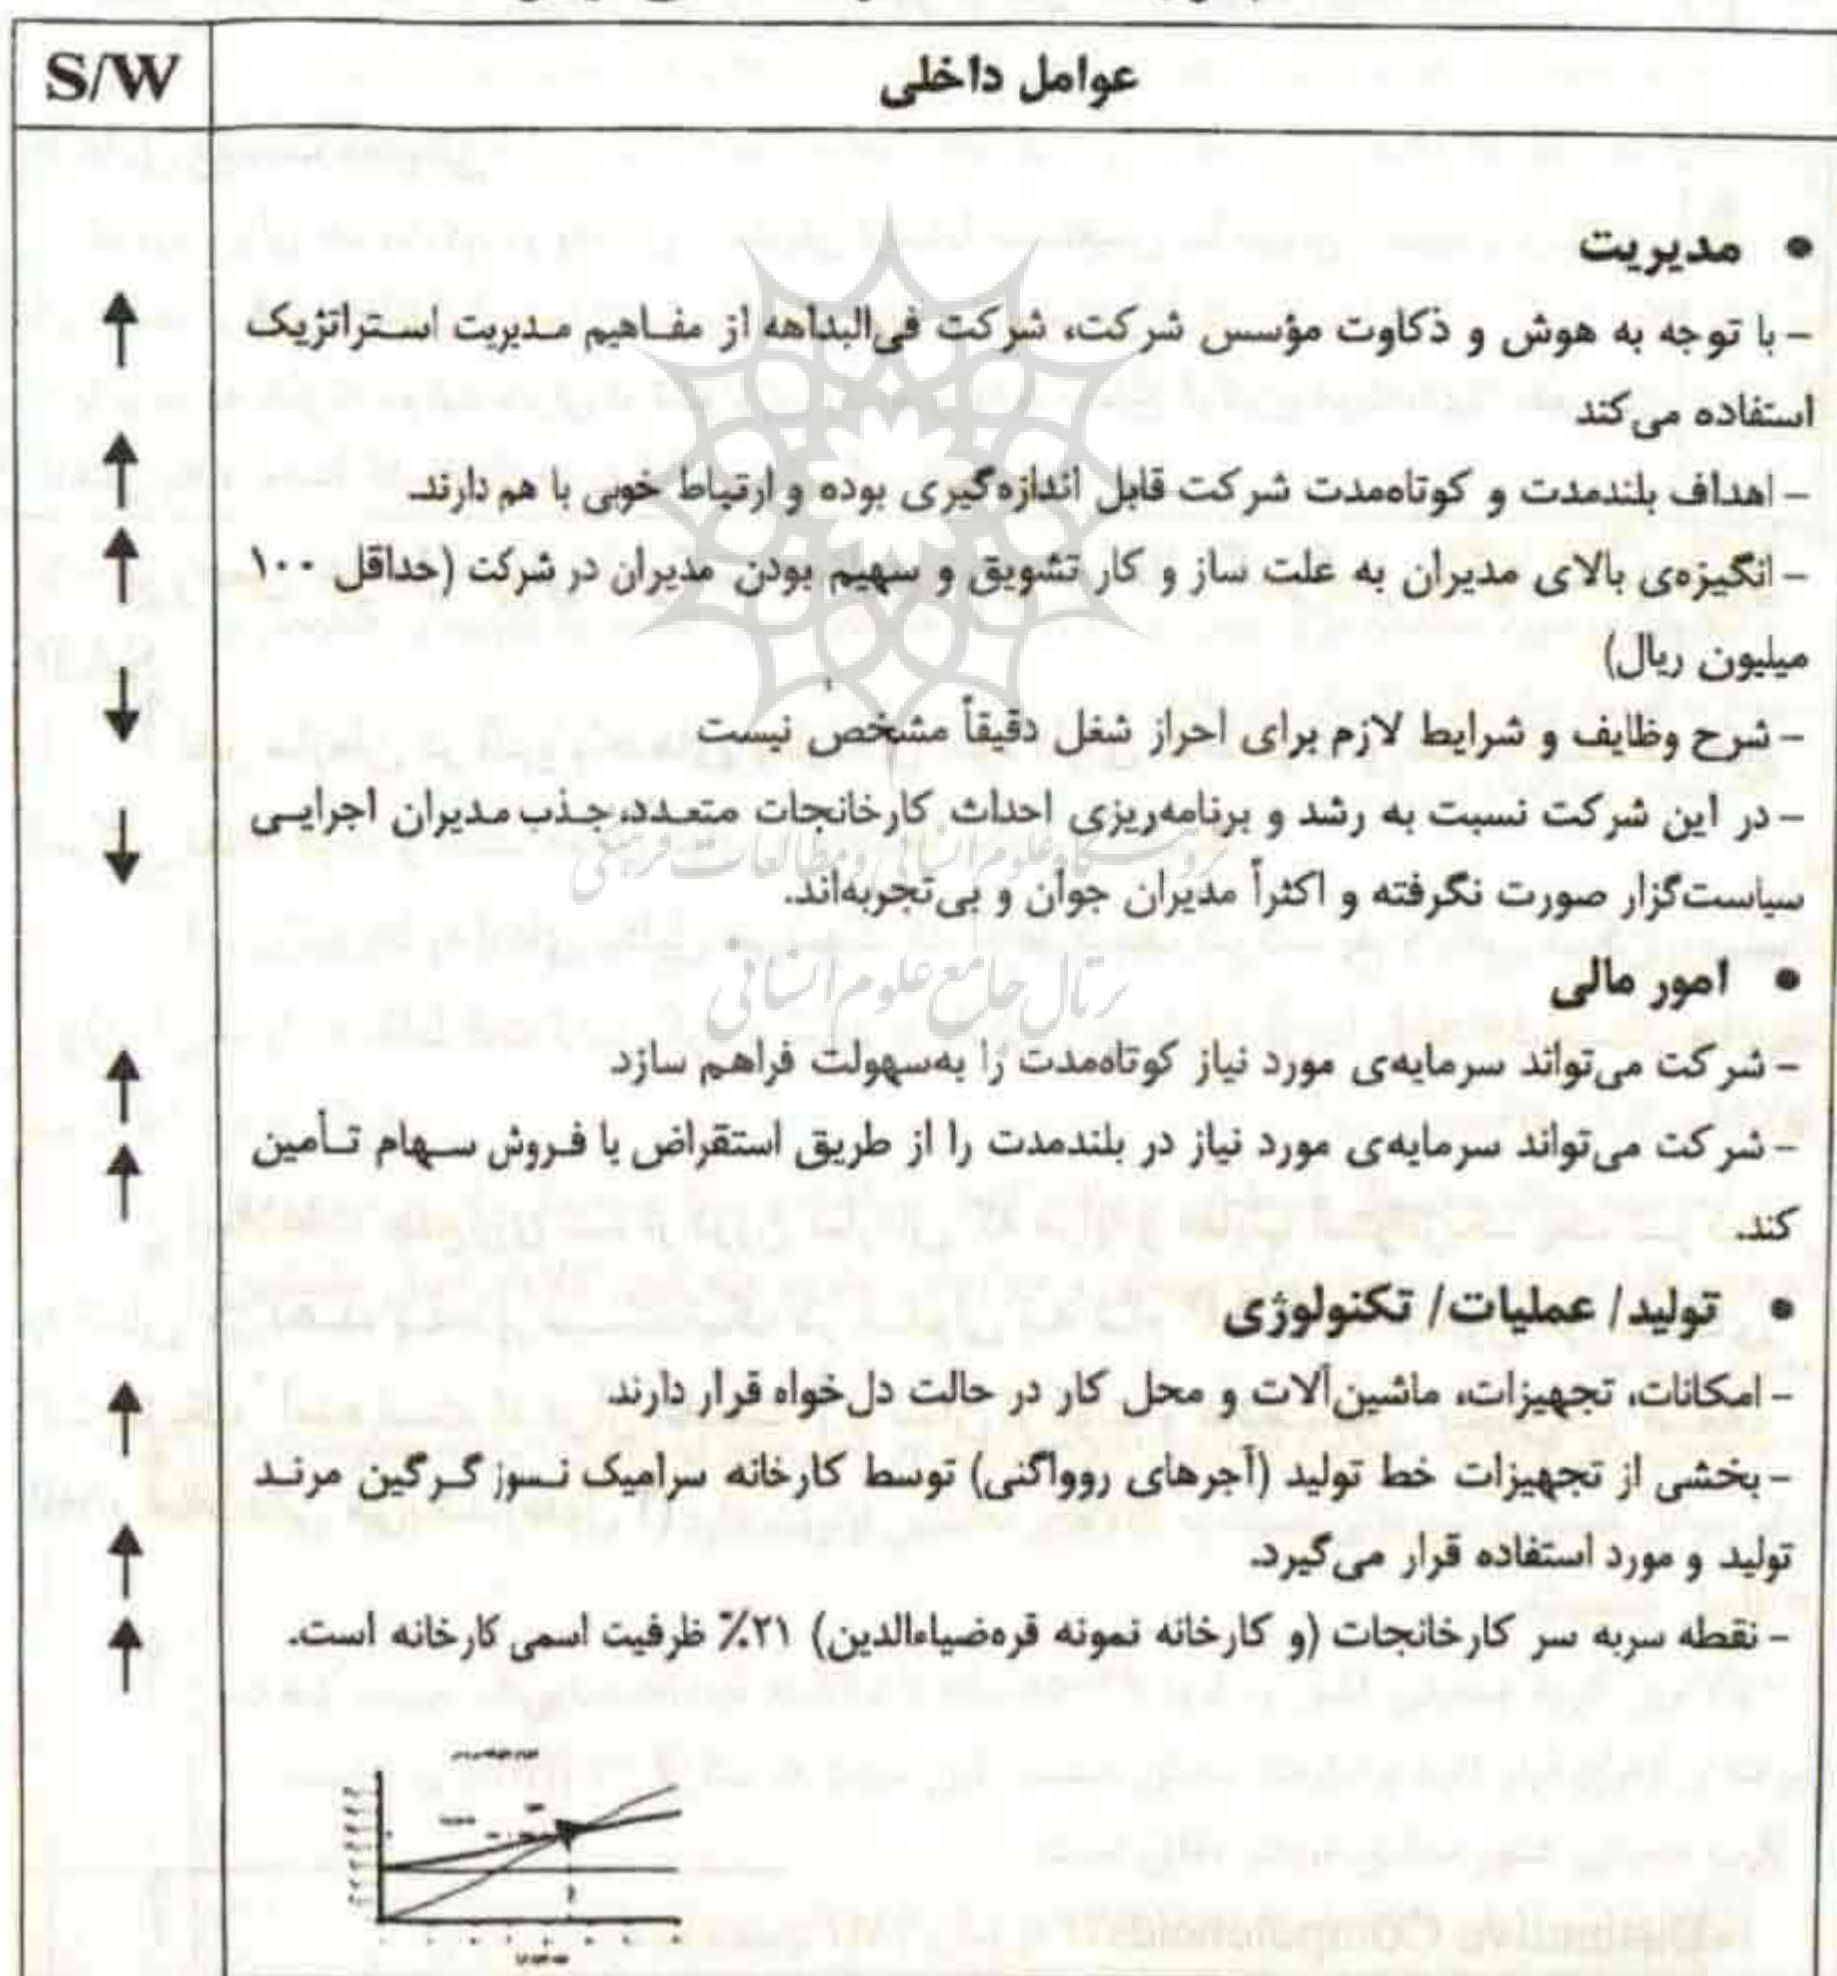 عوامل داخلی
S/W
• مدیریت
– با توجه به هوش و ذکاوت مؤسس شرکت، شرکت فی‌البداهه از مفاهیم مدیریت استراتژیک
استفاده می‌کند
– اهداف بلندمدت و کوتاه‌مدت شرکت قابل اندازه‌گیری بوده و ارتباط خوبی با هم دارند.
– انگیزه‌ی بالای مدیران به علت ساز و کار تشویق و سهیم بودن مدیران در شرکت (حداقل ۱۰۰
میلیون ریال)
– شرح وظایف و شرایط لازم برای احراز شغل دقیقاً مشخص نیست
– در این شرکت نسبت به رشد و برنامه‌ریزی احداث کارخانجات متعدد، جذب مدیران اجرایی
سیاست‌گزار صورت نگرفته و اکثراً مدیران جوان و بی‌تجربه‌اند.
پژوهشگاه علوم انسانی و مطالعات فرهنگی
پرتال جامع علوم انسانی
• امور مالی
– شرکت می‌تواند سرمایه‌ی مورد نیاز کوتاه‌مدت را به‌سهولت فراهم سازد
– شرکت می‌تواند سرمایه‌ی مورد نیاز در بلندمدت را از طریق استقراض یا فروش سهام تأمین
کند.
• تولید/ عملیات/ تکنولوژی
– امکانات، تجهیزات، ماشین‌آلات و محل کار در حالت دل‌خواه قرار دارند.
– بخشی از تجهیزات خط تولید (آجرهای روواگنی) توسط کارخانه سرامیک نسوز گرگین مرند
تولید و مورد استفاده قرار می‌گیرد.
– نقطه سربه سر کارخانجات (و کارخانه نمونه قره‌ضیاءالدین) ۲۱٪ ظرفیت اسمی کارخانه است.